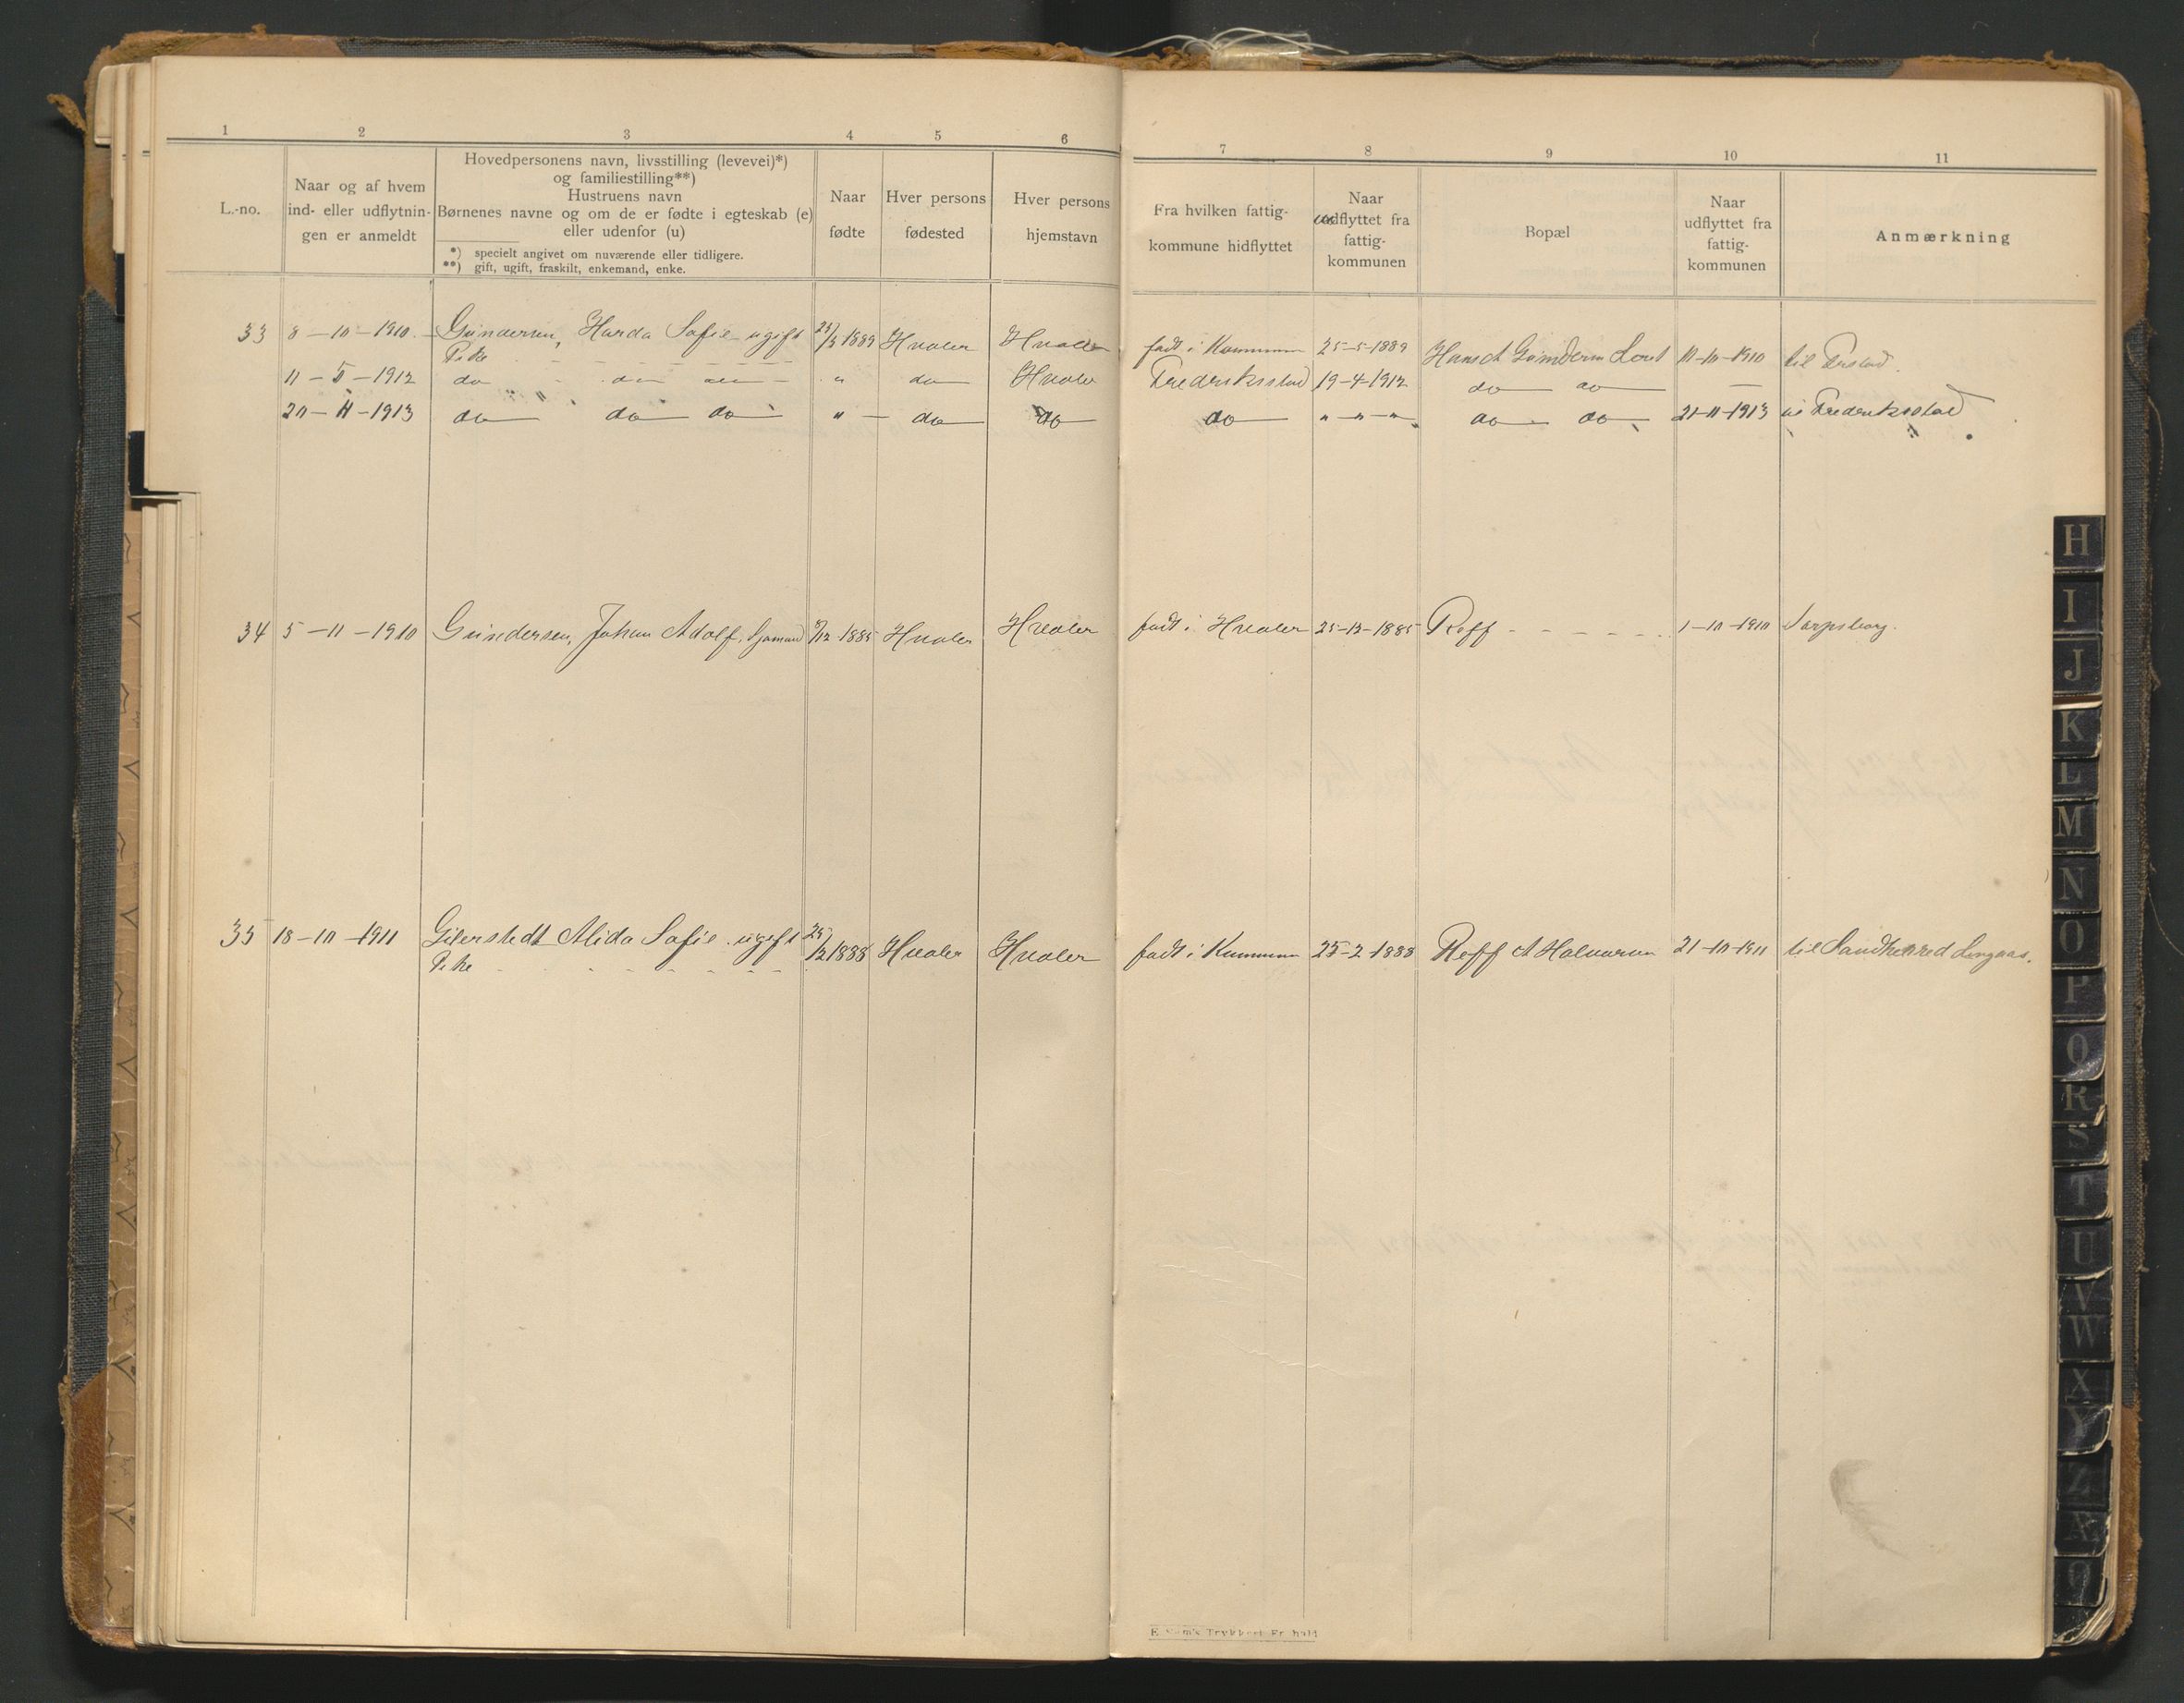 1 2 3 4 5 6 7 8 9 10 11
L.-no.
Naar og af hvem
ind- eller udflytnin-
gen er anmeldt
Hovedpersonens navn, livsstilling (levevei)*)
og familiestilling**)
Hustruens navn
Børnenes navne og om de er fødte i egteskab (e)
eller udenfor (u)
*) specielt angivet om nuværende eller tidligere.
**) gift, ugift, fraskilt, enkemand, enke.
Naar
fødte
Hver persons
fødested
Hver persons
hjemstavn
Fra hvilken fattig-
kommune hidflyttet
Naar
udflyttet fra
fattig-
kommunen
Bopæl
Naar
udflyttet fra
fattig-
kommunen
Anmærkning
33 8-10-1910 Gundersen, Harda Sofie ugift 25/5 1889 Hvaler Hvaler født i Kommunen 25-5-1889 Hans A Gundersen 11-10-1910 til Frstad.
Pike
11-5-1912 do do do " do Hvaler Frederiksstad 19-4-1912 do do —
20-11-1913 do do do " do do do " " " do do 21-11-1913 til Frederiksstad
34 5-11-1910 Gundersen, Johan Adolf, Sjømand /12 1885 Hvaler Hvaler født i Hvaler 25-12-1885 Roff 1-10-1910 Sarpsborg.
35 18-10-1911 Gilerstedt Alida Sofie ugift 25/2 1888 Hvaler Hvaler født i Kommunen 25-2-1888 Roff A Halvorsen 21-10-1911 til Sandhered
Pike
E. Sem's Trykkeri Fr.hald
H
I
J
K
L
M
N
O
P
Q
R
S
T
U
V
W
X
Y
Z
Æ
Ø